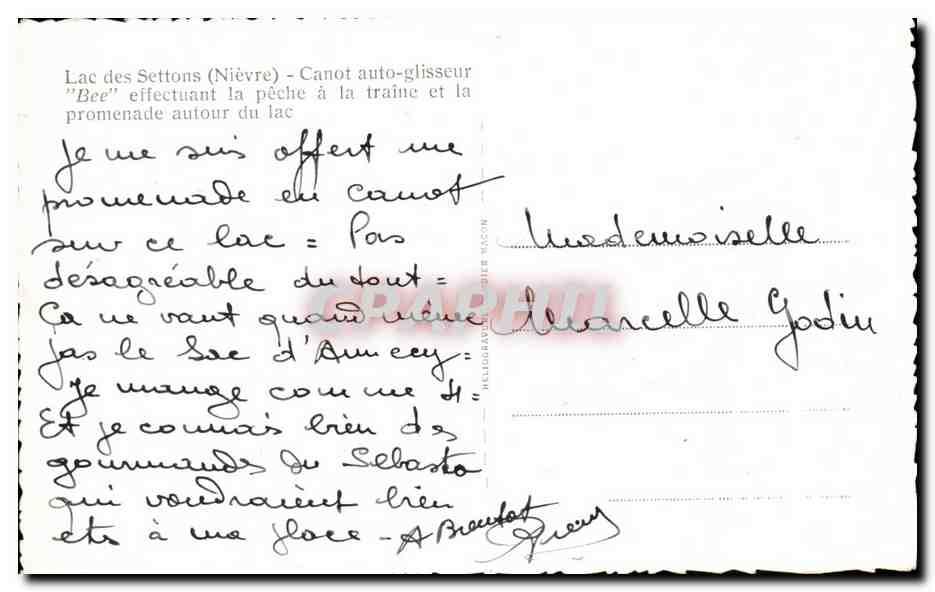 Lac des Settons (Nièvre) - Canot auto-glisseur
"Bee" effectuant la pêche à la traîne et la
promenade autour du lac
Je me suis offert une
promenade en canot
sur ce lac = Pas
désagréable du tout =
Ça ne vaut quand même
pas le Lac d'Annecy =
Je mange comme 4 =
Et je connais bien des
gourmandes du Sébasto
qui voudraient bien
etre à ma place - A Bientot
Mademoiselle
Marcelle Godin
HELIOGRAVURE MACON
CPARAMA